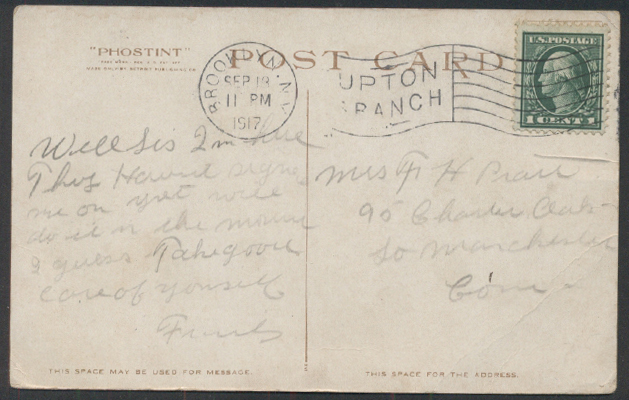 "PHOSTINT"
POST CARD
BROOKLYN, N.Y.
SEP 18
11 PM
1917
UPTON
BRANCH
U.S. POSTAGE
1 CENT 1
Well Sis I'm here
They Havent signed
me on yet will
do it in the morning
I guess Take good
care of yourself
Mrs F H
95 Charter Oak
So Manchester
Conn
THIS SPACE MAY BE USED FOR MESSAGE.
THIS SPACE FOR THE ADDRESS.